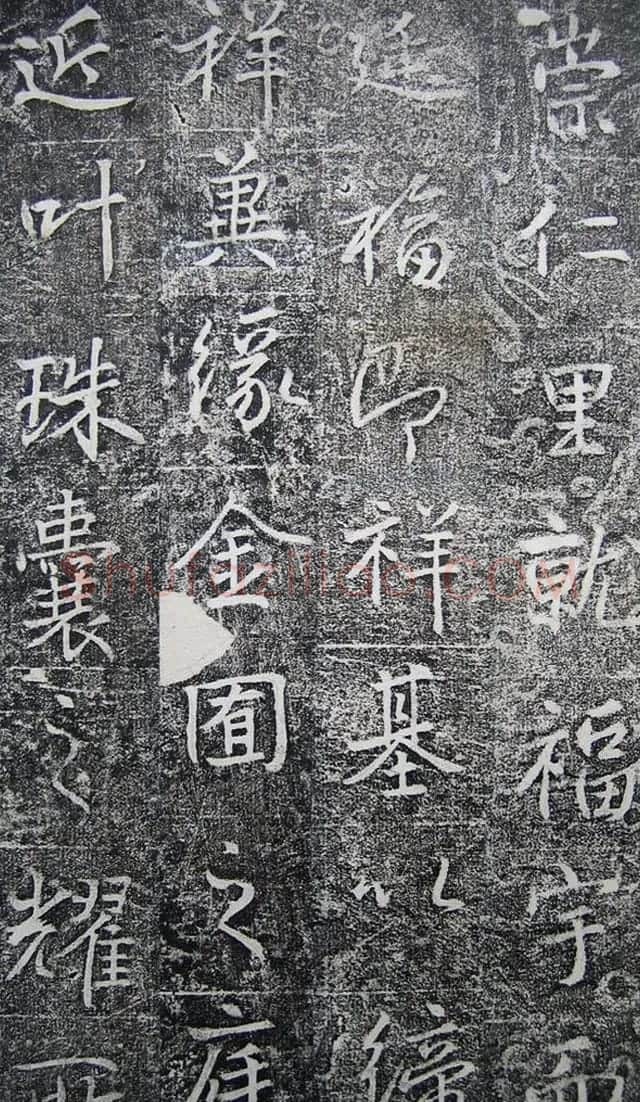 崇仁里就福宇而
延福即祥基以締
祥冀緣金囿之
近叶珠囊之耀
shufaziliao.com